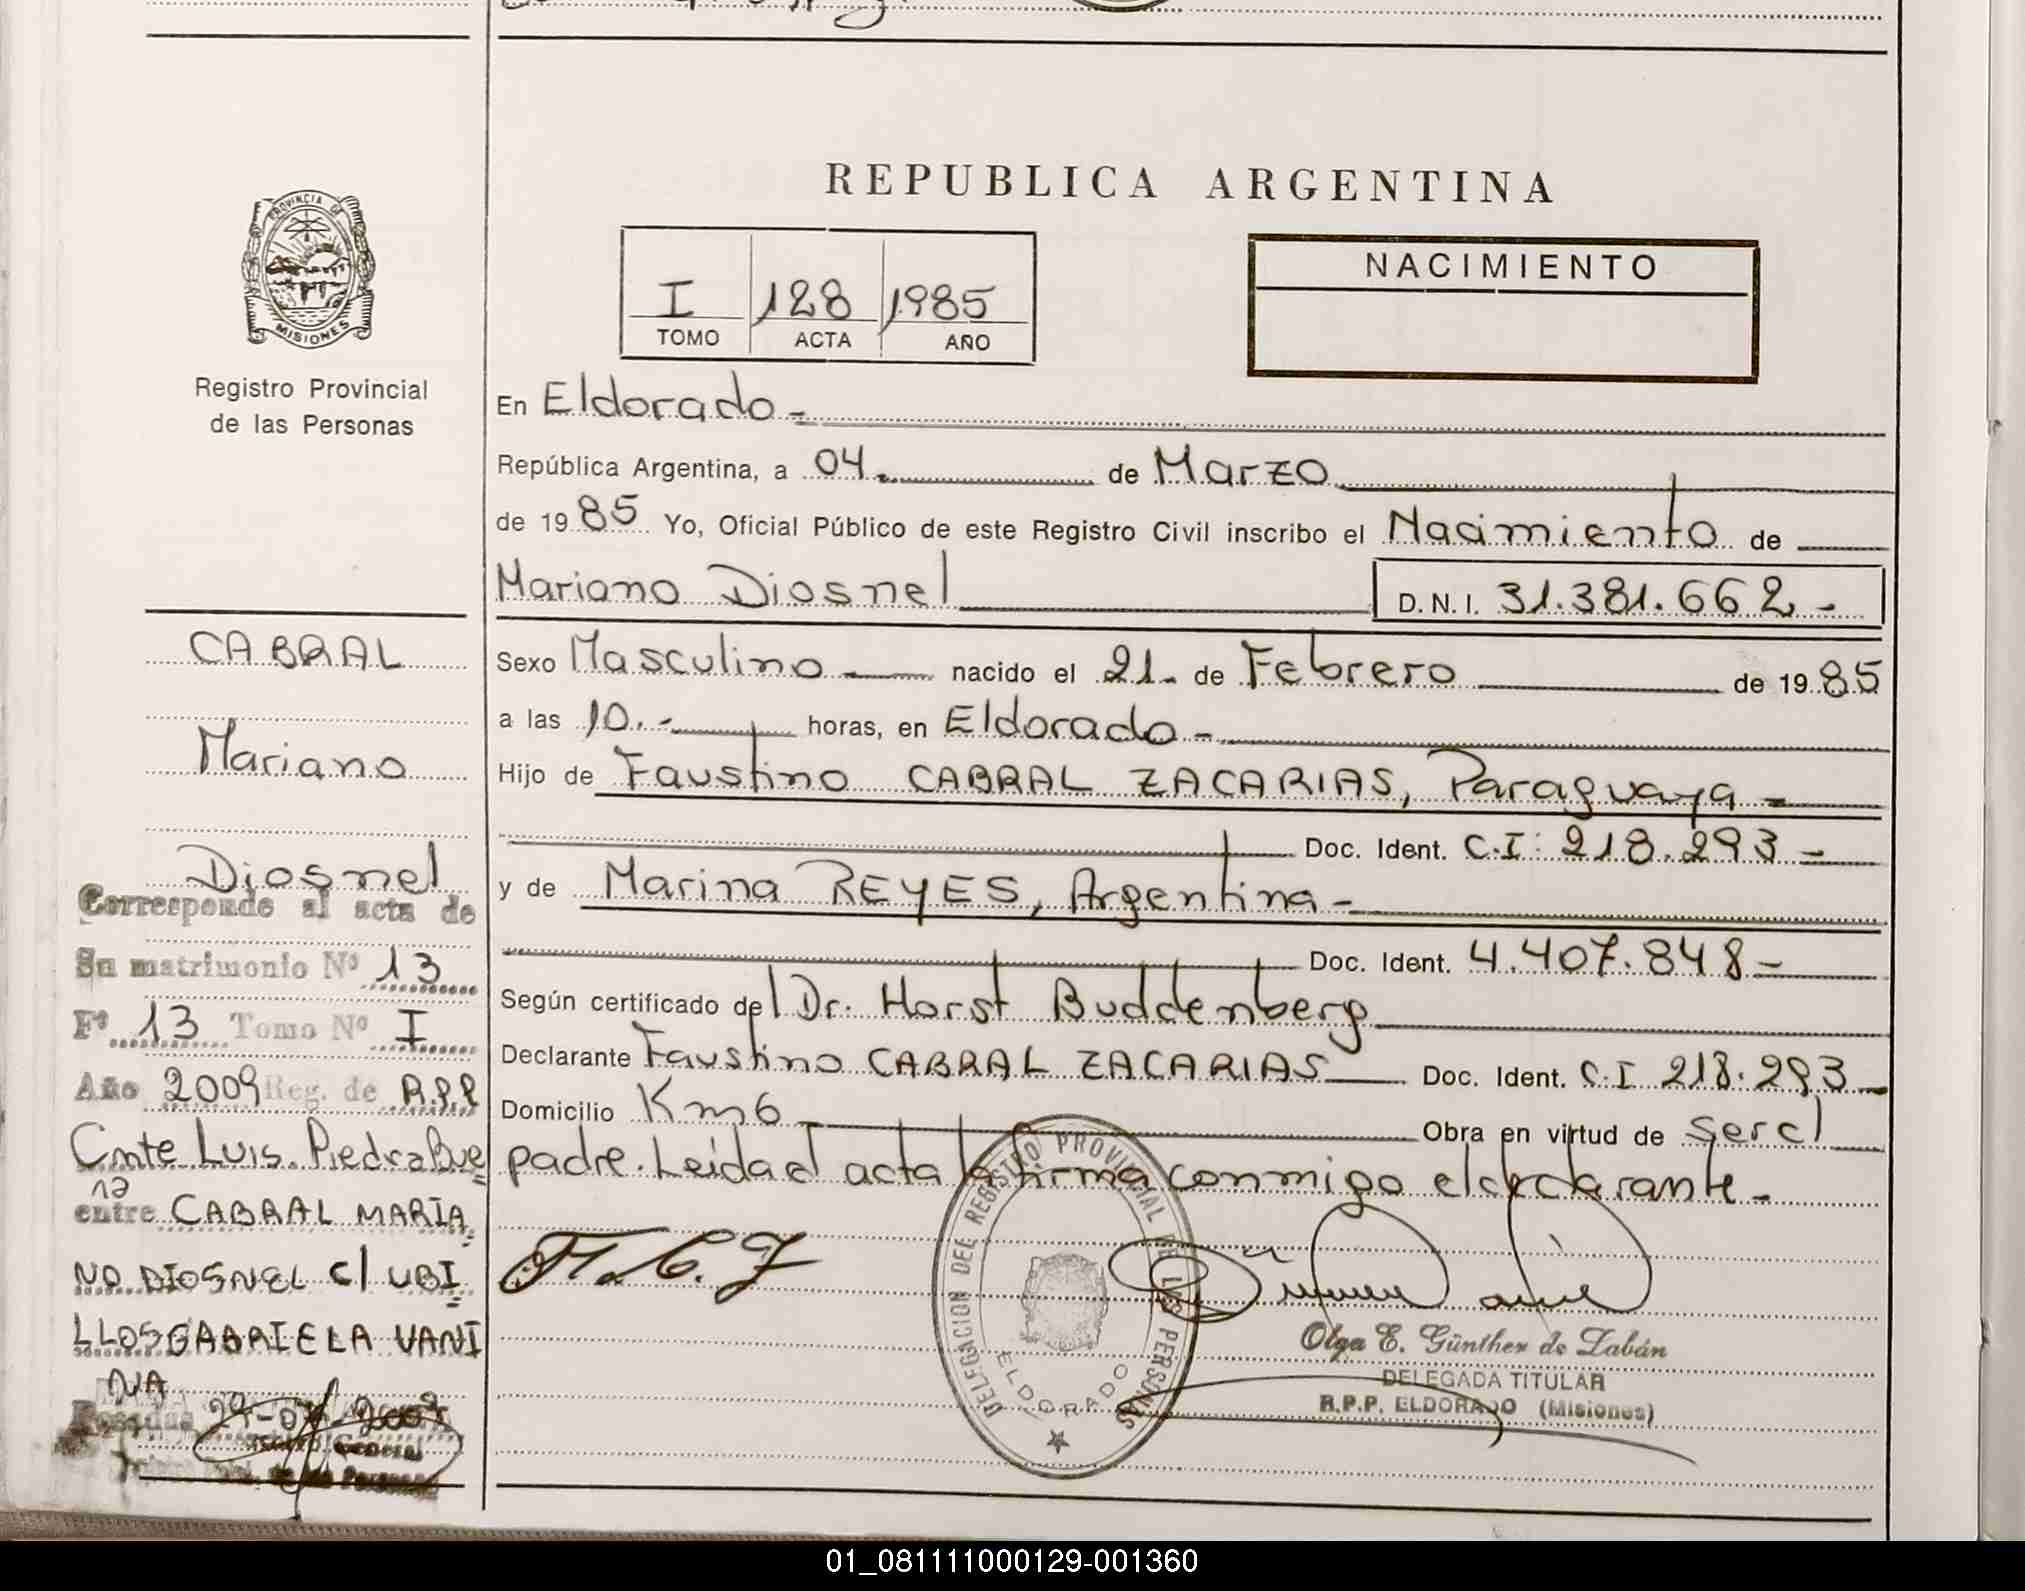 REPUBLICA ARGENTINA
PROVINCIA DE
MISIONES
Registro Provincial
de las Personas
I 128 1985
TOMO ACTA AÑO
NACIMIENTO
En Eldorado -
República Argentina, a 04. de Marzo
de 19 85 Yo, Oficial Público de este Registro Civil inscribo el Nacimiento de
Mariano Diosnel D.N.I. 31.381.662 -
Sexo Masculino nacido el 21 - de Febrero de 19 85
a las 10.- horas, en Eldorado -
Hijo de Faustino CABRAL ZACARIAS, Paraguaya -
Doc. Ident. C.I: 218.293 -
y de Marina REYES, Argentina -
Doc. Ident. 4.407.848 -
Según certificado del Dr. Horst Buddenberg
Declarante Faustino CABRAL ZACARIAS Doc. Ident. C.I 218.293
Domicilio Km 6 Obra en virtud de ser el
padre. Leída el acta la firma conmigo el declarante -
DELEGACION DEL REGISTRO PROVINCIAL DE LAS PERSONAS
ELDORADO
Olga E. Günther de Zabán
DELEGADA TITULAR
R.P.P. ELDORADO (Misiones)
CABRAL
Mariano
Diosnel
Corresponde al acta de
Su matrimonio Nº 13
Fº 13 Tomo Nº I
Año 2009 Reg. de R.P.P
Cmte Luis. PiedraBue
na
entre CABRAL MARIA
NO DIOSNEL C/ UBI
LLOS GABRIELA VANI
NA
Posadas
General
de las Personas
01_081111000129-001360